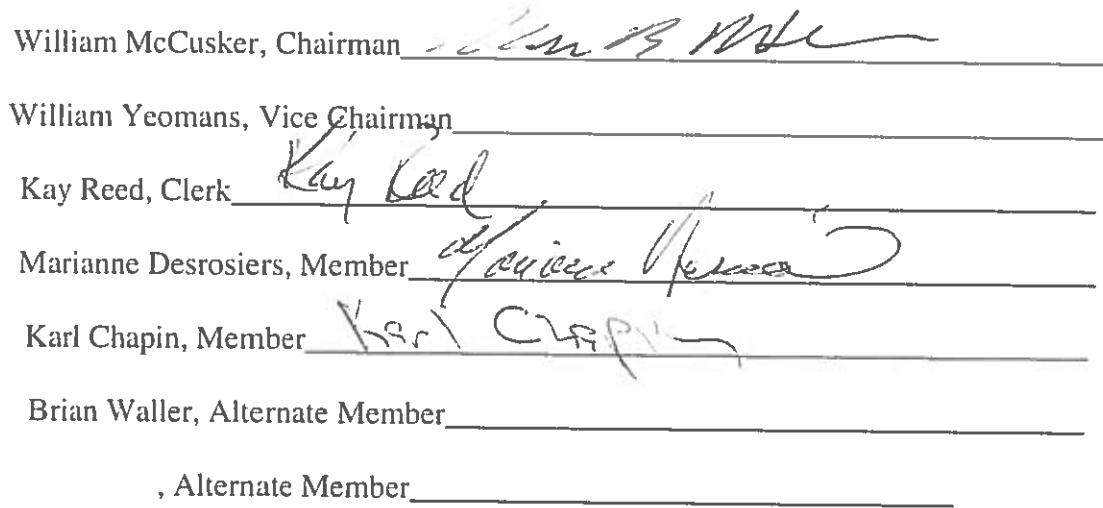 William McCusker, Chairman
William Yeomans, Vice Chairman
Kay Reed, Clerk Kay Reed
Marianne Desrosiers, Member
Karl Chapin, Member Karl Chapin
Brian Waller, Alternate Member
, Alternate Member